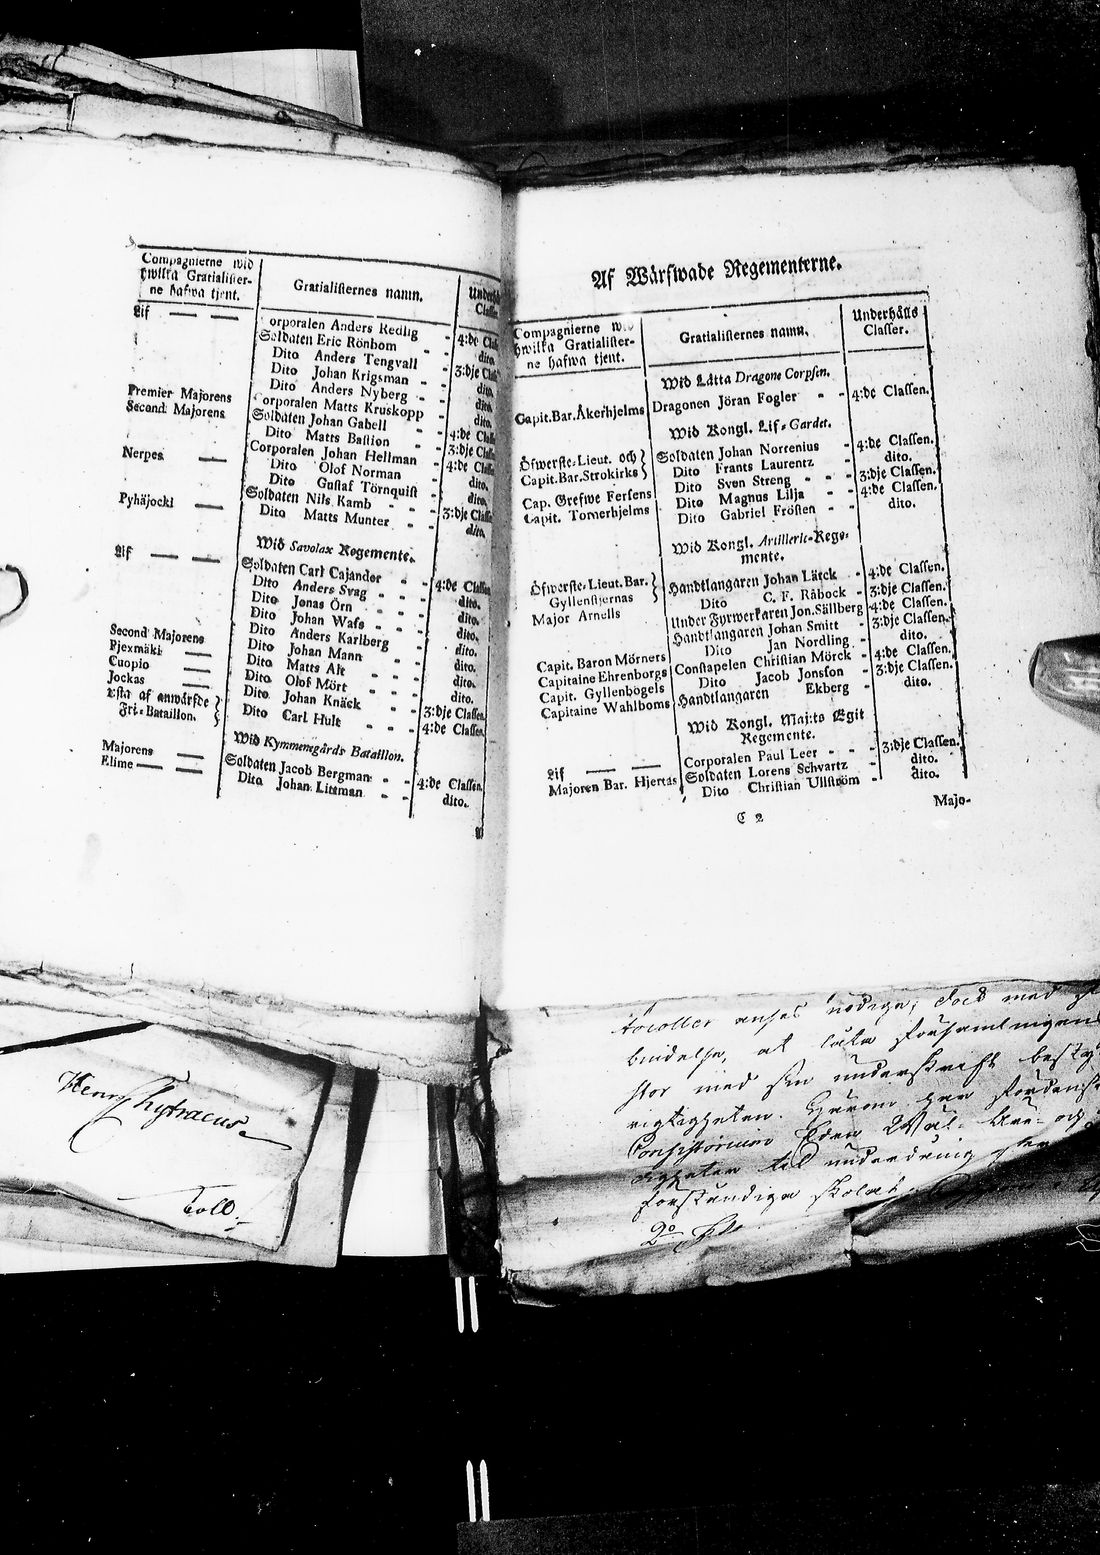 Compagnierne wid
hwilka Gratialister-
ne hafwa tjent.
Gratialisternes namn.
Underhå
Classer
Lif — —
orporalen Anders Redlig - 4:de Clas
Soldaten Eric Rönbom - - dito.
Dito Anders Tengvall - 3:dje Class
Dito Johan Krigsman - - dito.
Dito Anders Nyberg - - dito.
Premier Majorens orporalen Matts Kruskopp - dito.
Second Majorens Soldaten Johan Gabell - 4:de Class
Dito Matts Bastion - 3:dje Cla
Nerpes — Corporalen Johan Hellman - 4:de Class
Dito Olof Norman - - dito.
Dito Gustaf Törnquist - dito.
Pyhäjocki — Soldaten Nils Kamb - - 3:dje Classe
Dito Matts Munter - - dito.
Wid Savolax Regemente.
Lif — — Soldaten Carl Cajander - - 4:de Classen
Dito Anders Svag - - - dito.
Dito Jonas Örn - - - dito.
Dito Johan Wass - - - dito.
Dito Anders Karlberg - - dito.
Second Majorens Dito Johan Mann - - dito.
Pjexmäki — Dito Matts Alt - - - dito.
Cuopio — Dito Olof Mört - - - dito.
Jockas — Dito Johan Knäck - - 3:dje Classen.
af anwärfde
Fri-Bataillon. } Dito Carl Hult - - - 4:de Classen.
Wid Kymmenegårds Bataillon.
Majorens — Soldaten Jacob Bergman - - 4:de Classen.
Elime — — Dito Johan Littman - - dito.
Af Wärfwade Regementerne.
Compagnierne wid
hwilka Gratialister-
ne hafwa tjent.
Gratialisternes namn.
Underhålls
Classer.
Wid Lätta Dragone Corpsen.
Capit.Bar.Åkerhjelms Dragonen Jöran Fogler - - 4:de Classen.
Wid Kongl. Lif-Gardet.
Öfwerste-Lieut. och } Soldaten Johan Norrenius - 4:de Classen.
Capit.Bar.Strokirks } Dito Frants Laurentz - dito.
Dito Sven Streng - - - 3:dje Classen.
Cap. Grefwe Fersens Dito Magnus Lilja - - 4:de Classen.
Capit. Tornerhjelms Dito Gabriel Frösten - - dito.
Wid Kongl. Artillerie-Rege-
mente.
Öfwerste-Lieut.Bar. } Handtlangaren Johan Lätck - 4:de Classen.
Gyllenstjernas } Dito C. F. Råbock - 3:dje Classen.
Major Arnells Under Fyrwerkaren Jon.Sällberg 4:de Classen.
Handtlangaren Johan Smitt - 3:dje Classen.
Dito Jan Nordling - dito.
Capit. Baron Mörners Constapelen Christian Mörck - 4:de Classen.
Capitaine Ehrenborgs Dito Jacob Jonsson - 3:dje Classen.
Capit. Gyllenbögels Handtlangaren Ekberg - dito.
Capitaine Wahlboms
Wid Kongl. Maj:ts Egit
Regemente.
Lif — — Corporalen Paul Leer - - - 3:dje Classen.
Majoren Bar. Hjertas Soldaten Lorens Schvartz - dito.
Dito Christian Ullström - dito.
C 2
Majo-
anses nödiga; dock med
bindelse, at låta församlingen
med sin underskrift
rigtigheten.
Consistorium
til underdånig
forständiga
Henr. Kytraeus.
Toll.